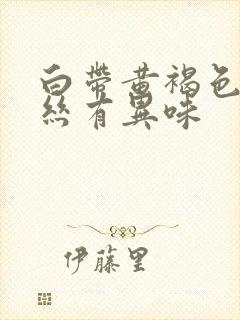 白帶黃褐色
絲有異味
伊藤里